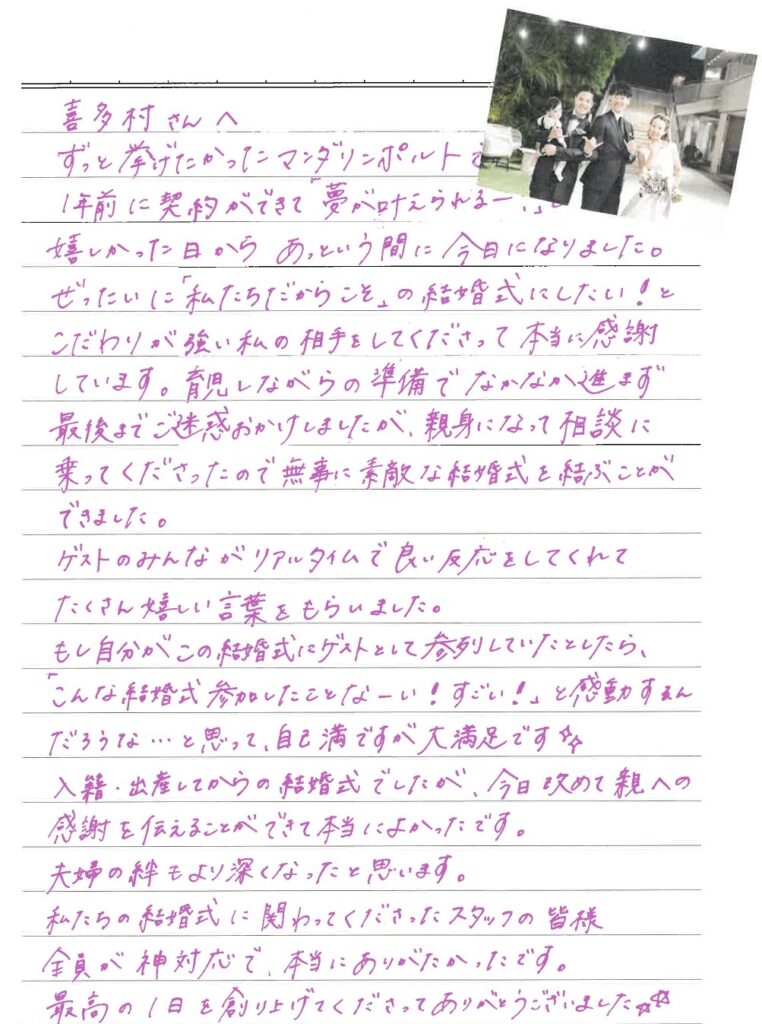 喜多村さんへ
ずっと挙げたかったマンダリンポルトで
1年前に契約ができて「夢が叶えられるー、」
嬉しかった日から あっという間に今日になりました。
ぜったいに「私たちだからこそ」の結婚式にしたい！と
こだわりが強い私の相手をしてくださって本当に感謝
しています。育児しながらの準備でなかなか進まず
最後までご迷惑おかけしましたが、親身になって相談に
乗ってくださったので無事に素敵な結婚式を結ぶことが
できました。
ゲストのみんながリアルタイムで良い反応をしてくれて
たくさん嬉しい言葉をもらいました。
もし自分がこの結婚式にゲストとして参列していたとしたら、
「こんな結婚式参加したことなーい！すごい！」と感動するん
だろうな…と思って、自己満ですが大満足です☆☆
入籍・出産してからの結婚式でしたが、今日改めて親への
感謝を伝えることができて本当によかったです。
夫婦の絆もより深くなったと思います。
私たちの結婚式に関わってくださったスタッフの皆様
全員が神対応で、本当にありがたかったです。
最高の1日を創り上げてくださってありがとうございました☆☆